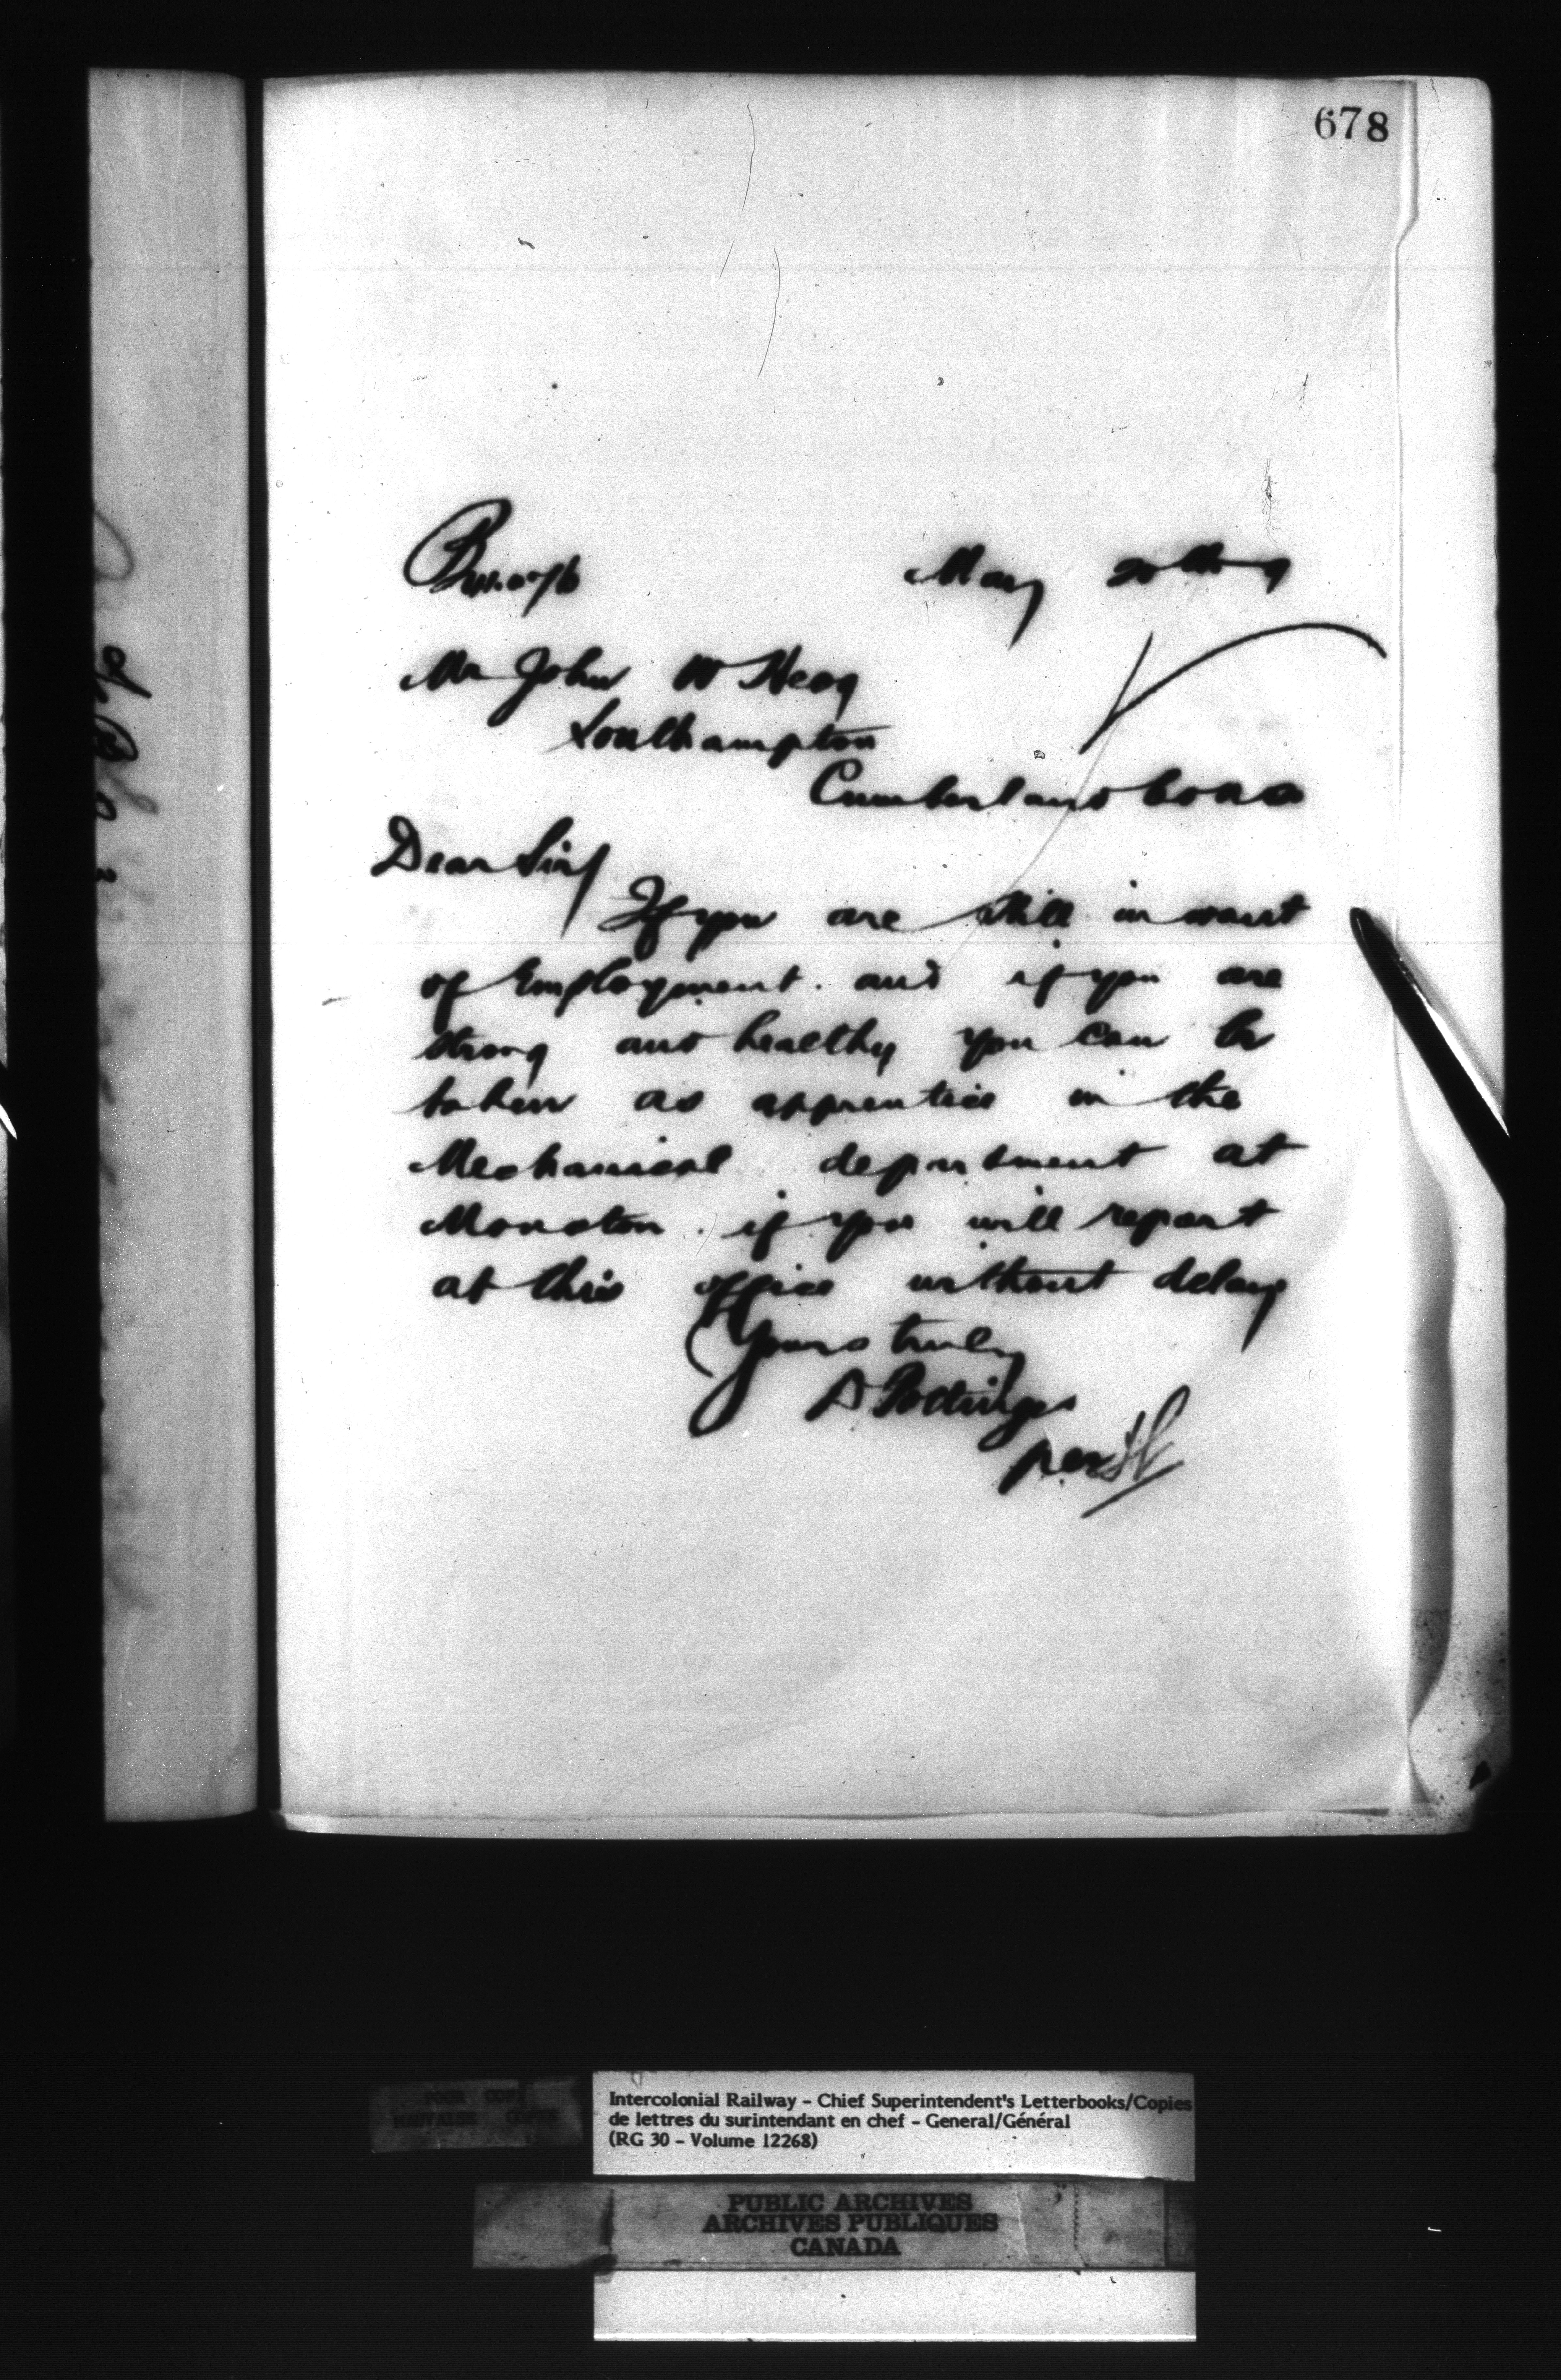 678
May 20th
Mr John W Heag
Southampton
Cumberland Co NS
Dear Sir/
If you are still in want
of Employment. and if you are
strong and healthy you can be
taken as apprentice in the
Mechanical department at
Moncton. if you will report
at this office without delay
Yours truly
D Pottinger
per
POOR COPY
MAUVAISE COPIE
Intercolonial Railway – Chief Superintendent's Letterbooks/Copies
de lettres du surintendant en chef – General/Général
(RG 30 – Volume 12268)
PUBLIC ARCHIVES
ARCHIVES PUBLIQUES
CANADA